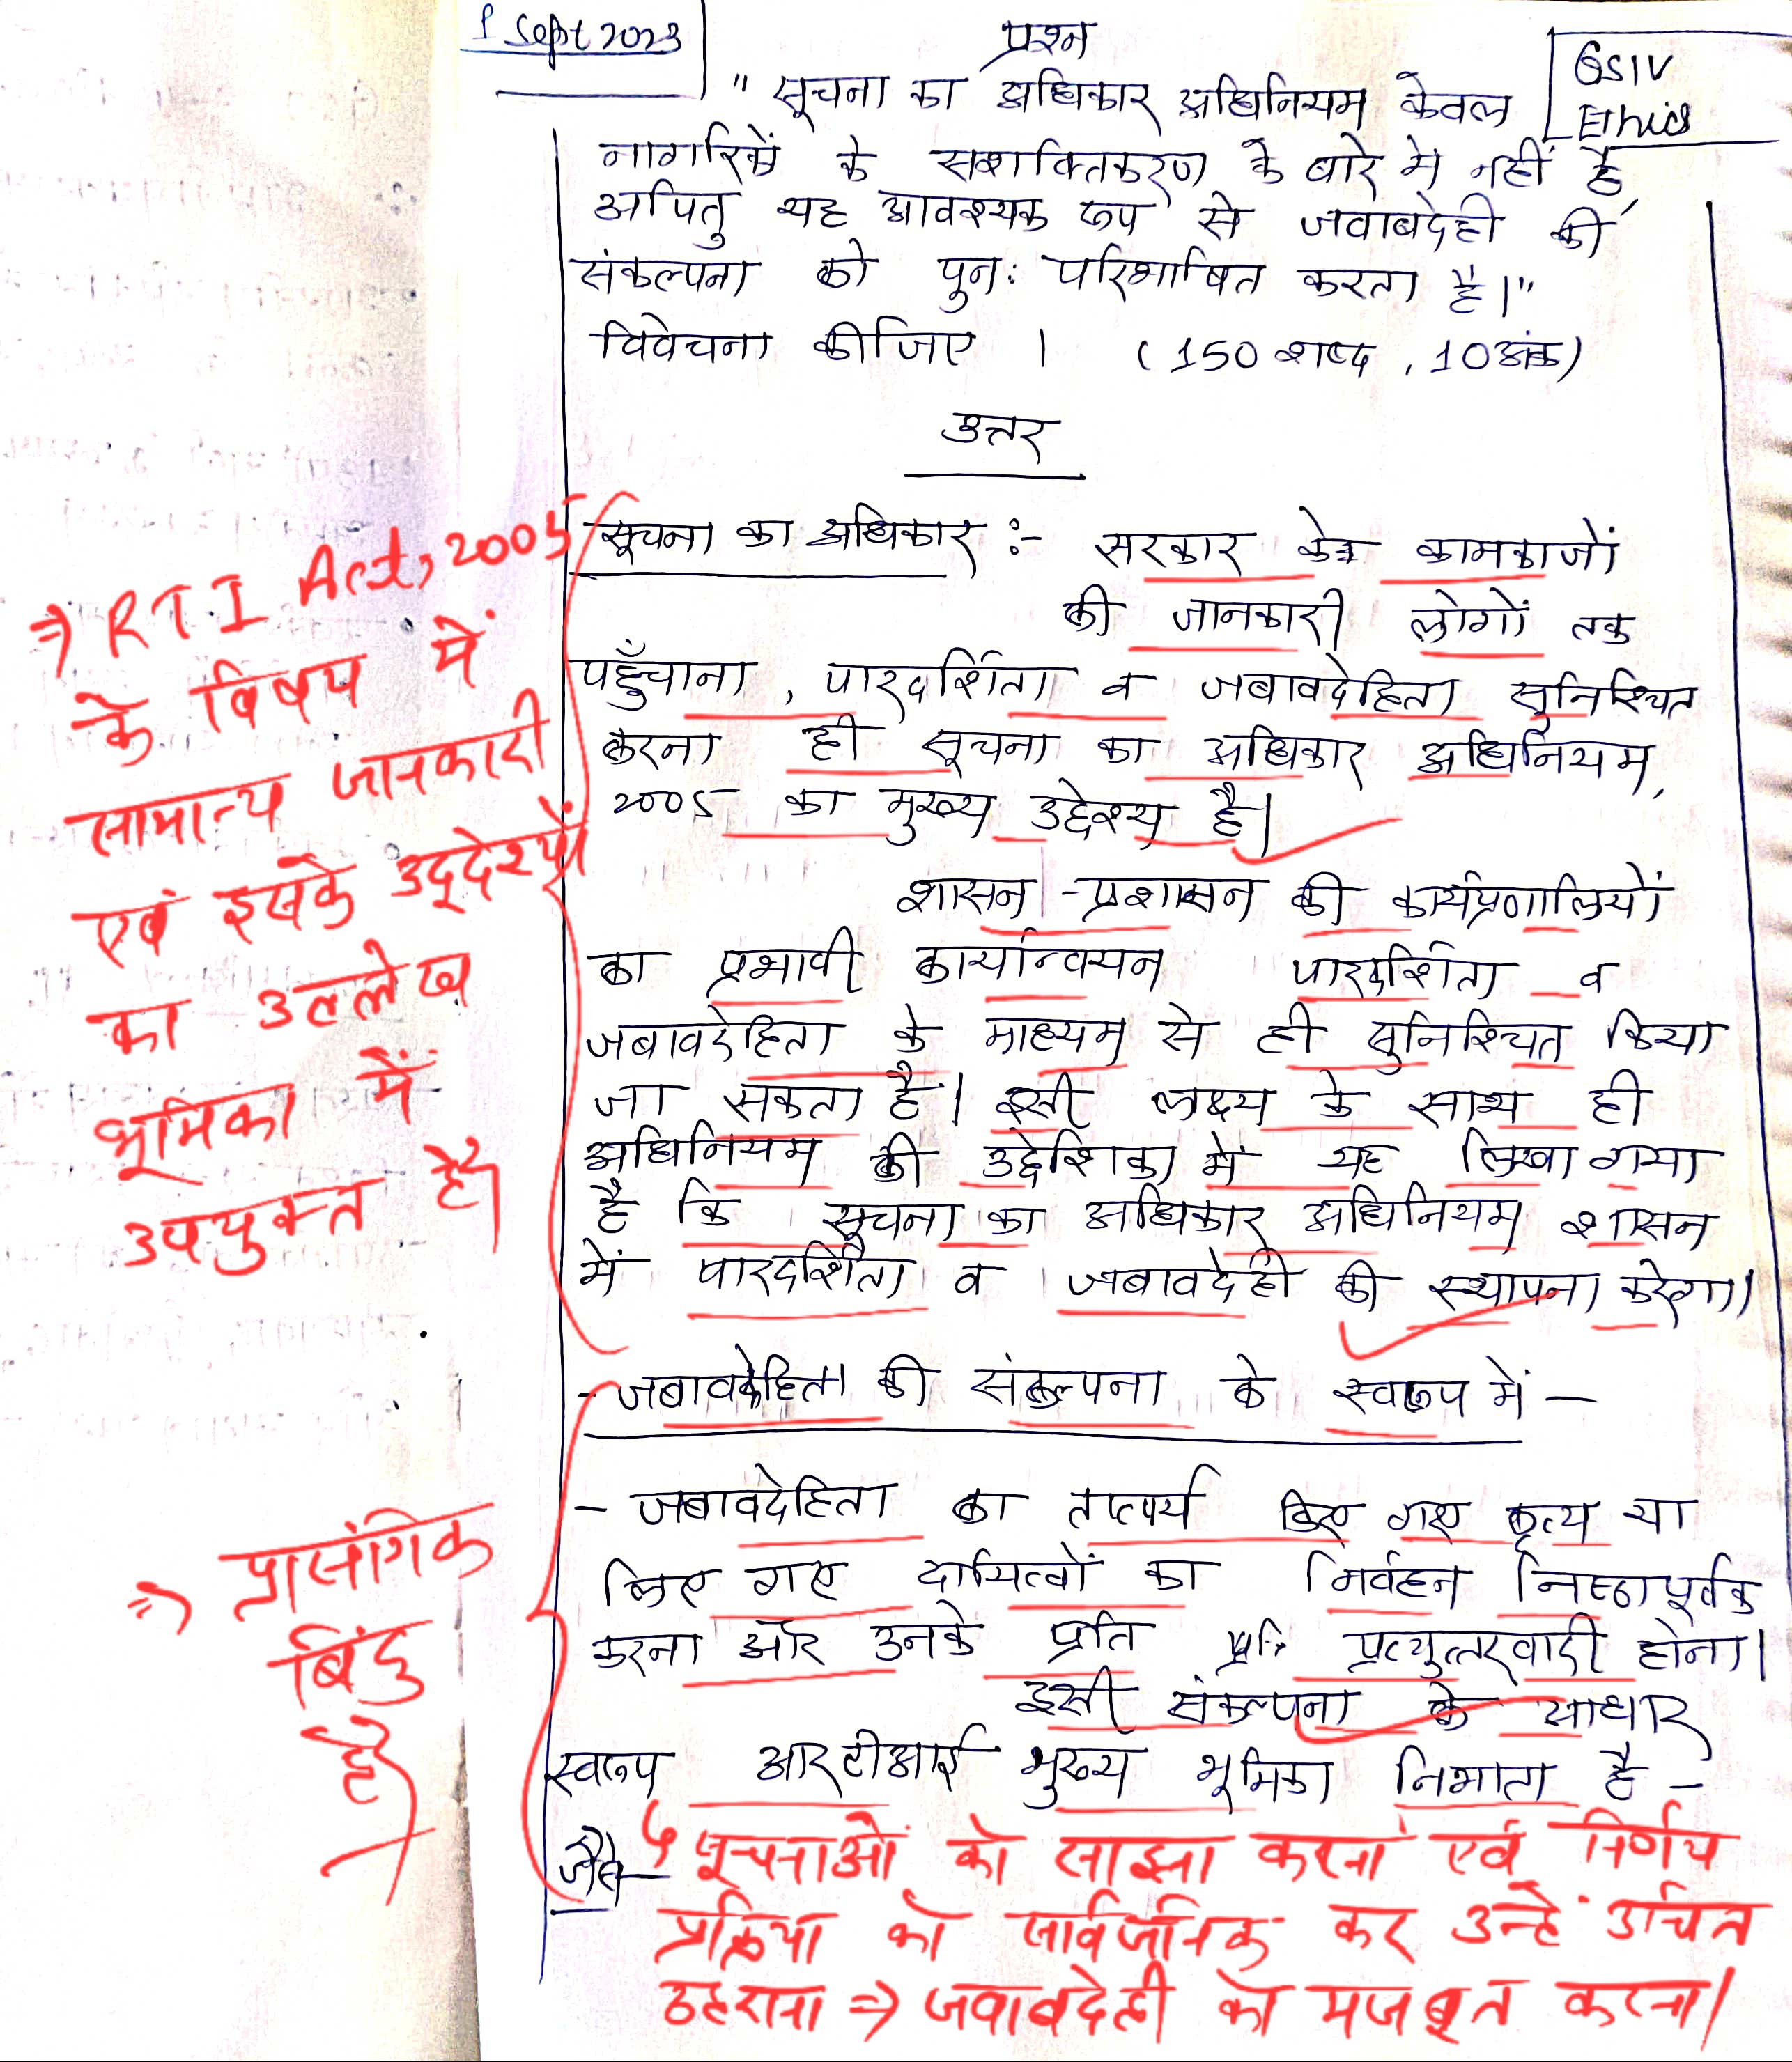 1 Sept 2023
प्रश्न
GSIV
Ethics
" सूचना का अधिकार अधिनियम केवल
नागरिकों के सशक्तिकरण के बारे में नहीं है,
अपितु यह आवश्यक रूप से जवाबदेही की
संकल्पना को पुनः परिभाषित करता है।"
विवेचना कीजिए । (150 शब्द, 10 अंक)
उत्तर
सूचना का अधिकार :- सरकार के कामकाजों
की जानकारी लोगों तक
पहुँचाना, पारदर्शिता व जबावदेहिता सुनिश्चित
करना ही सूचना का अधिकार अधिनियम,
2005 का मुख्य उद्देश्य है।
शासन-प्रशासन की कार्यप्रणालियों
का प्रभावी कार्यान्वयन पारदर्शिता व
जबावदेहिता के माध्यम से ही सुनिश्चित किया
जा सकता है। इसी लक्ष्य के साथ ही
अधिनियम की उद्देशिका में यह लिखा गया
है कि सूचना का अधिकार अधिनियम शासन
में पारदर्शिता व जबावदेही की स्थापना करेगा।
⇒ RTI Act, 2005
के विषय में
सामान्य जानकारी
एवं इसके उद्देश्यों
का उल्लेख
भूमिका में
उपयुक्त है।
- जबावदेहिता की संकल्पना के स्वरूप में -
- जबावदेहिता का तात्पर्य किए गए कृत्य या
लिए गए दायित्वों का निर्वहन निष्ठापूर्वक
करना और उनके प्रति प्रत्युत्तरवादी होना।
इसी संकल्पना के आधार
स्वरूप आरटीआई मुख्य भूमिका निभाता है -
जैसे -
⇒ प्रासंगिक
बिंदु
है।
सूचनाओं को साझा करना एवं निर्णय
प्रक्रिया को सार्वजनिक कर उन्हें उचित
ठहराना ⇒ जवाबदेही को मजबूत करना।